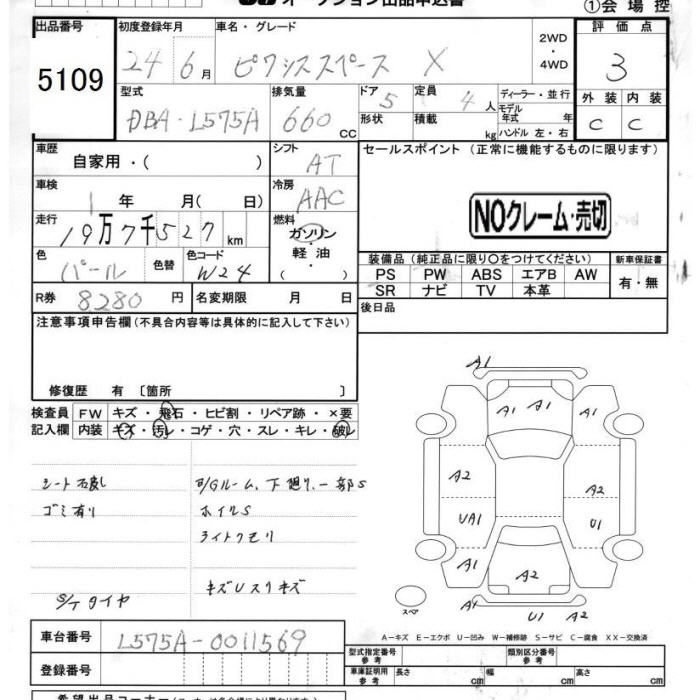 オークション出品申込書 ①会場控
出品番号 初度登録年月 車名・グレード 2WD・4WD 評価点
5109 24 6月 ピクシススペース X 3
型式 排気量 ドア 5 定員 4人 ディーラー・並行 外装 内装
DBA-L575A 660cc 形状 積載 kg モデル年式 年 ハンドル 左・右 C C
車歴 シフト セールスポイント (正常に機能するものに限ります)
自家用・( ) AT
車検 冷房
1 年 月( 日) AAC NOクレーム・売切
走行 燃料
19万7千527km ガソリン・軽油・
色 色替 色コード 装備品(純正品に限り○をつけてください) 新車保証書
パール W24 PS PW ABS エアB AW 有・無
SR ナビ TV 本革
R券 8280円 名変期限 月 日 後日品
注意事項申告欄(不具合内容等は具体的に記入して下さい)
修復歴 有 〔箇所 〕
検査員 FW キズ・飛石・ヒビ割・リペア跡・×要
記入欄 内装 キズ・汚レ・コゲ・穴・スレ・キレ・破レ
ゴミ有り ホイルS
ライトクモリ
S/Tタイヤ キズUスリキズ
A1
A1 A1 A1
A2 A2
UA1 U1
A1 A2 A1
スペア A1 U1 A2
A−キズ E−エクボ U−凹み W−補修跡 S−サビ C−腐食 XX−交換済
車台番号 L575A-0011569 型式指定番号 参考 類別区分番号 参考
登録番号 車庫証明用 参考 長さ cm 幅 cm 高さ cm
希望出品コーナー